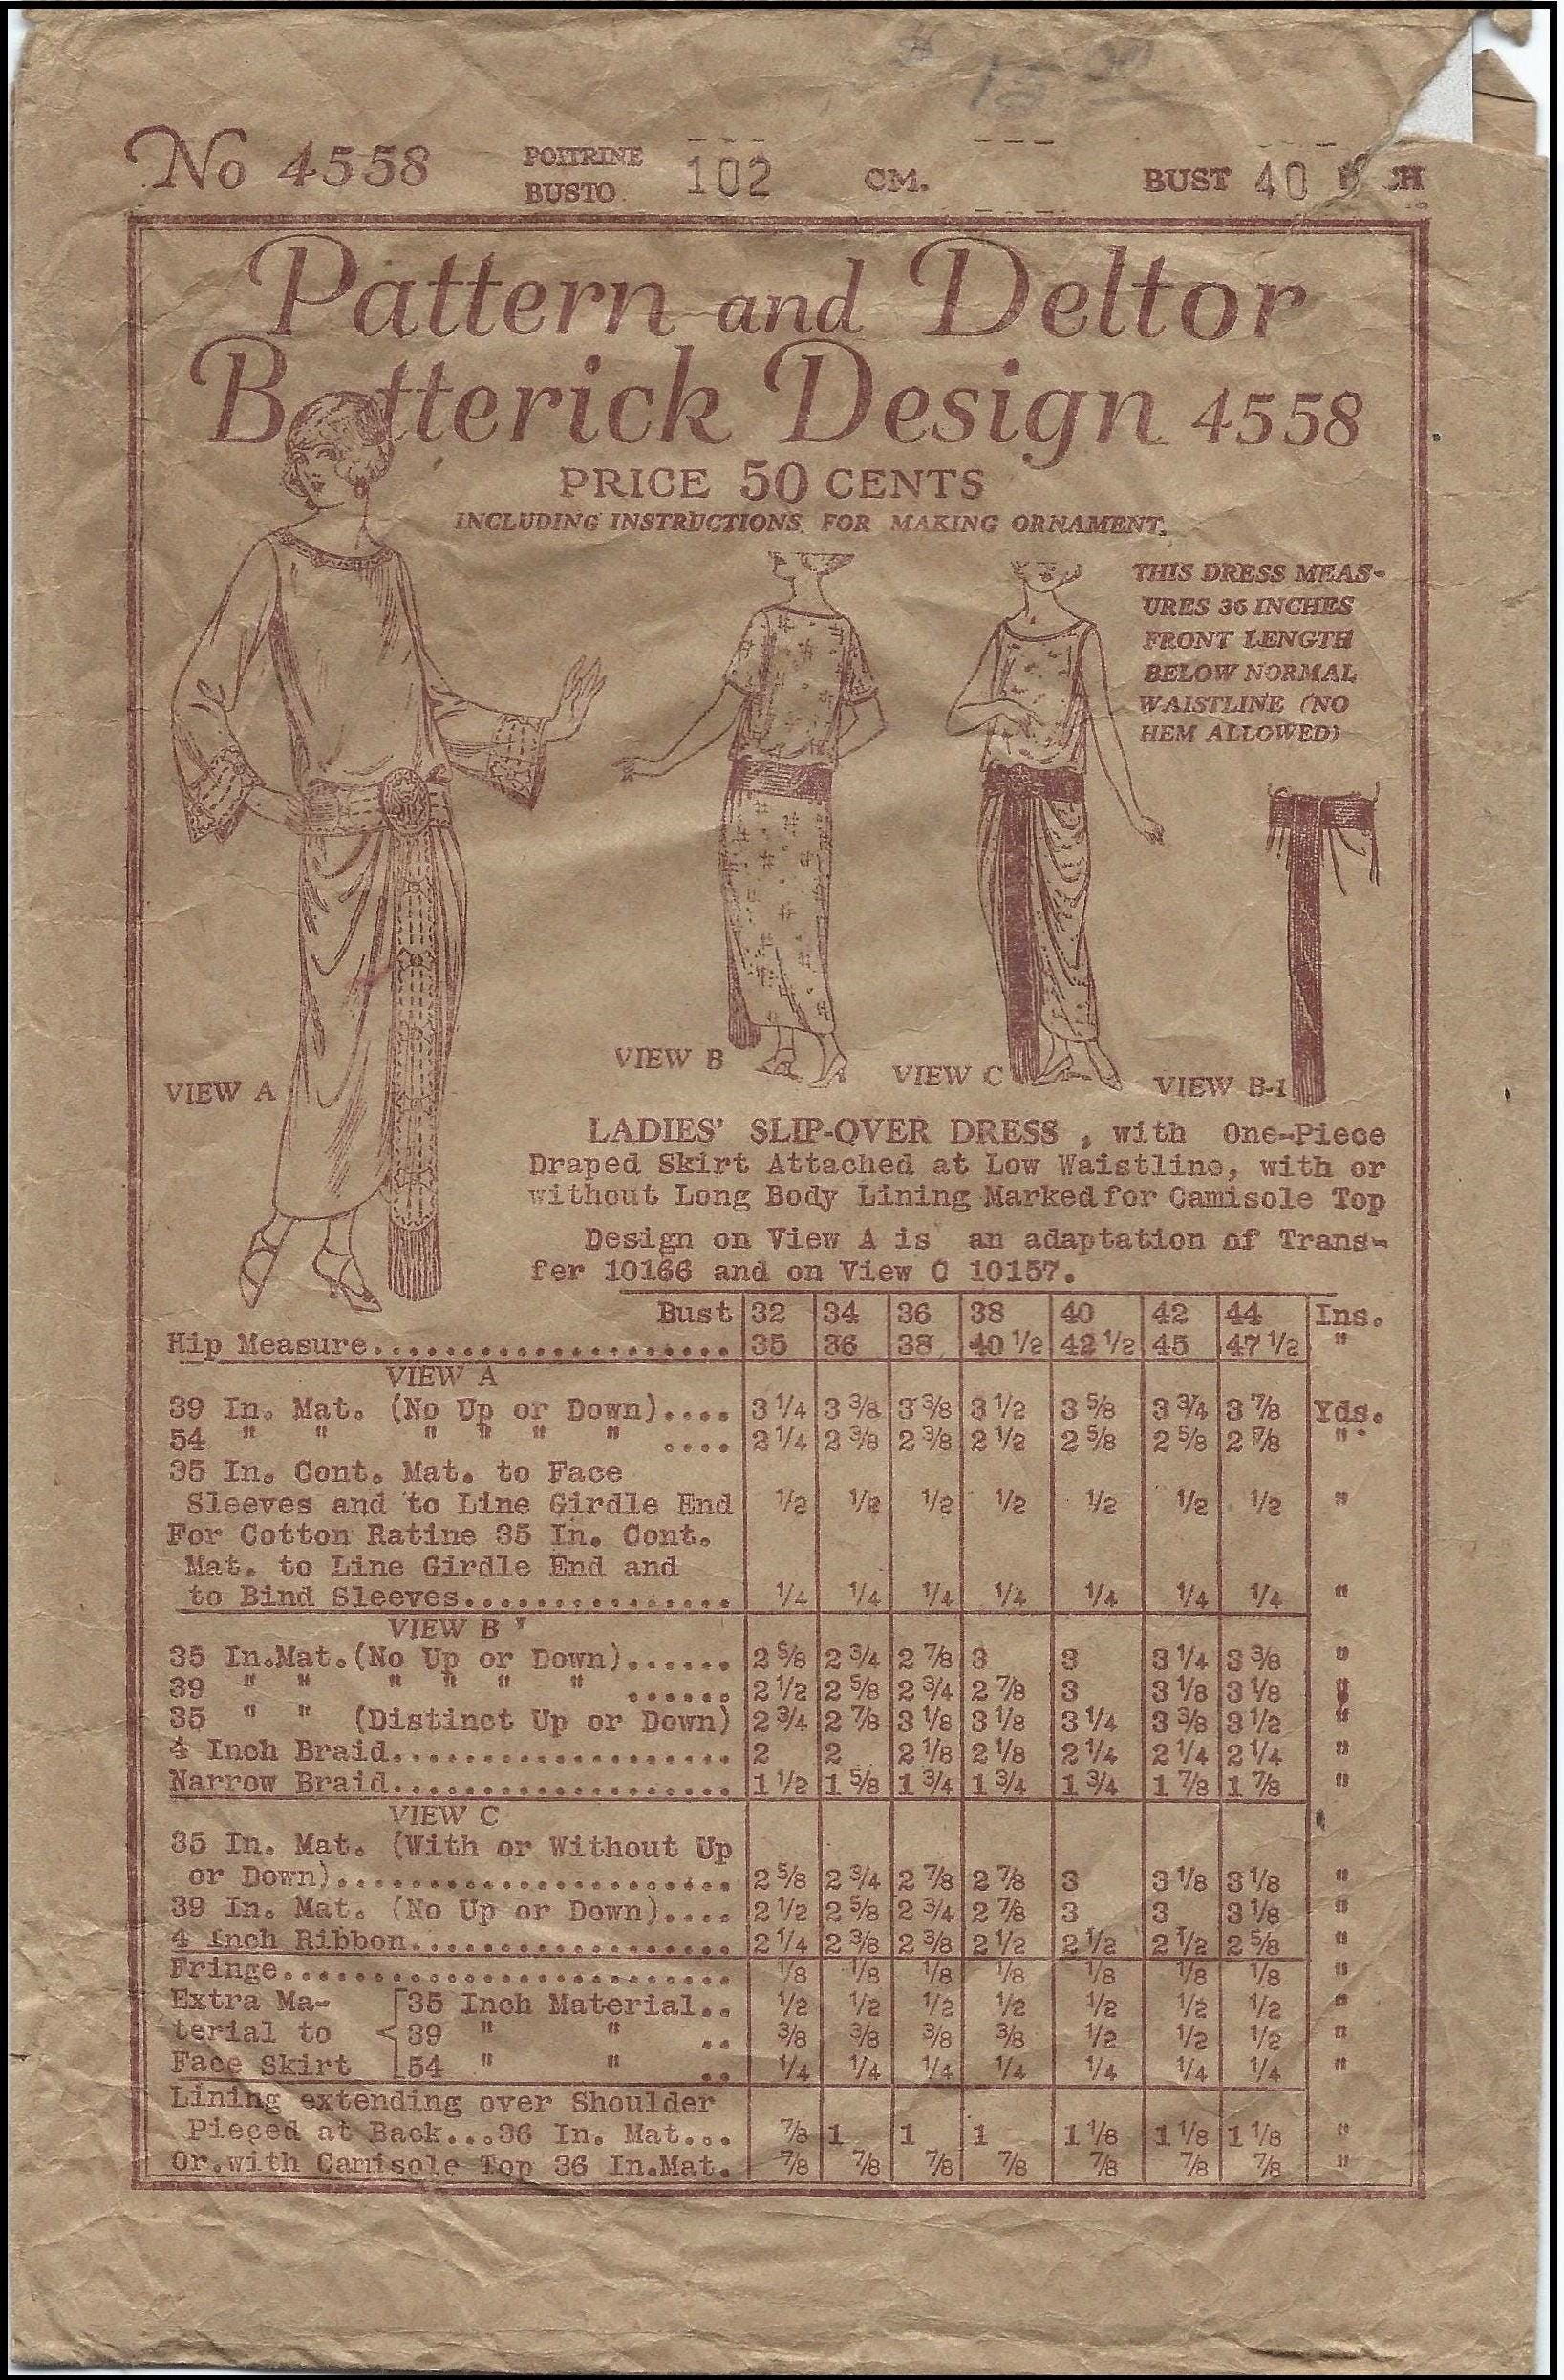 $ 15 00
No 4558 POITRINE BUSTO 102 CM. BUST 40
Pattern and Deltor
Butterick Design 4558
PRICE 50 CENTS
INCLUDING INSTRUCTIONS FOR MAKING ORNAMENT.
THIS DRESS MEAS-
URES 36 INCHES
FRONT LENGTH
BELOW NORMAL
WAISTLINE (NO
HEM ALLOWED)
VIEW A
VIEW B
VIEW C
VIEW B-1
LADIES' SLIP-OVER DRESS , with One-Piece
Draped Skirt Attached at Low Waistline, with or
without Long Body Lining Marked for Camisole Top
Design on View A is an adaptation of Trans-
fer 10166 and on View C 10157.
Bust 32 34 36 38 40 42 44 Ins.
Hip Measure.................... 35 36 38 40 1/2 42 1/2 45 47 1/2 "
VIEW A
39 In. Mat. (No Up or Down).... 3 1/4 3 3/8 3 3/8 3 1/2 3 5/8 3 3/4 3 7/8 Yds.
54 " " " " " " .... 2 1/4 2 3/8 2 3/8 2 1/2 2 5/8 2 5/8 2 7/8 "
35 In. Cont. Mat. to Face
Sleeves and to Line Girdle End 1/2 1/2 1/2 1/2 1/2 1/2 1/2 "
For Cotton Ratine 35 In. Cont.
Mat. to Line Girdle End and
to Bind Sleeves............... 1/4 1/4 1/4 1/4 1/4 1/4 1/4 "
VIEW B
35 In.Mat.(No Up or Down)...... 2 5/8 2 3/4 2 7/8 3 3 3 1/4 3 3/8 "
39 " " " " " " ...... 2 1/2 2 5/8 2 3/4 2 7/8 3 3 1/8 3 1/8 "
35 " " (Distinct Up or Down) 2 3/4 2 7/8 3 1/8 3 1/8 3 1/4 3 3/8 3 1/2 "
4 Inch Braid................... 2 2 2 1/8 2 1/8 2 1/4 2 1/4 2 1/4 "
Narrow Braid................... 1 1/2 1 5/8 1 3/4 1 3/4 1 3/4 1 7/8 1 7/8 "
VIEW C
35 In. Mat. (With or Without Up
or Down)...................... 2 5/8 2 3/4 2 7/8 2 7/8 3 3 1/8 3 1/8 "
39 In. Mat. (No Up or Down).... 2 1/2 2 5/8 2 3/4 2 7/8 3 3 3 1/8 "
4 Inch Ribbon.................. 2 1/4 2 3/8 2 3/8 2 1/2 2 1/2 2 1/2 2 5/8 "
Fringe......................... 1/8 1/8 1/8 1/8 1/8 1/8 1/8 "
Extra Ma- 35 Inch Material.. 1/2 1/2 1/2 1/2 1/2 1/2 1/2 "
terial to 39 " " .. 3/8 3/8 3/8 3/8 1/2 1/2 1/2 "
Face Skirt 54 " " .. 1/4 1/4 1/4 1/4 1/4 1/4 1/4 "
Lining extending over Shoulder
Pieced at Back...36 In. Mat... 7/8 1 1 1 1 1/8 1 1/8 1 1/8 "
Or.with Camisole Top 36 In.Mat. 7/8 7/8 7/8 7/8 7/8 7/8 7/8 "